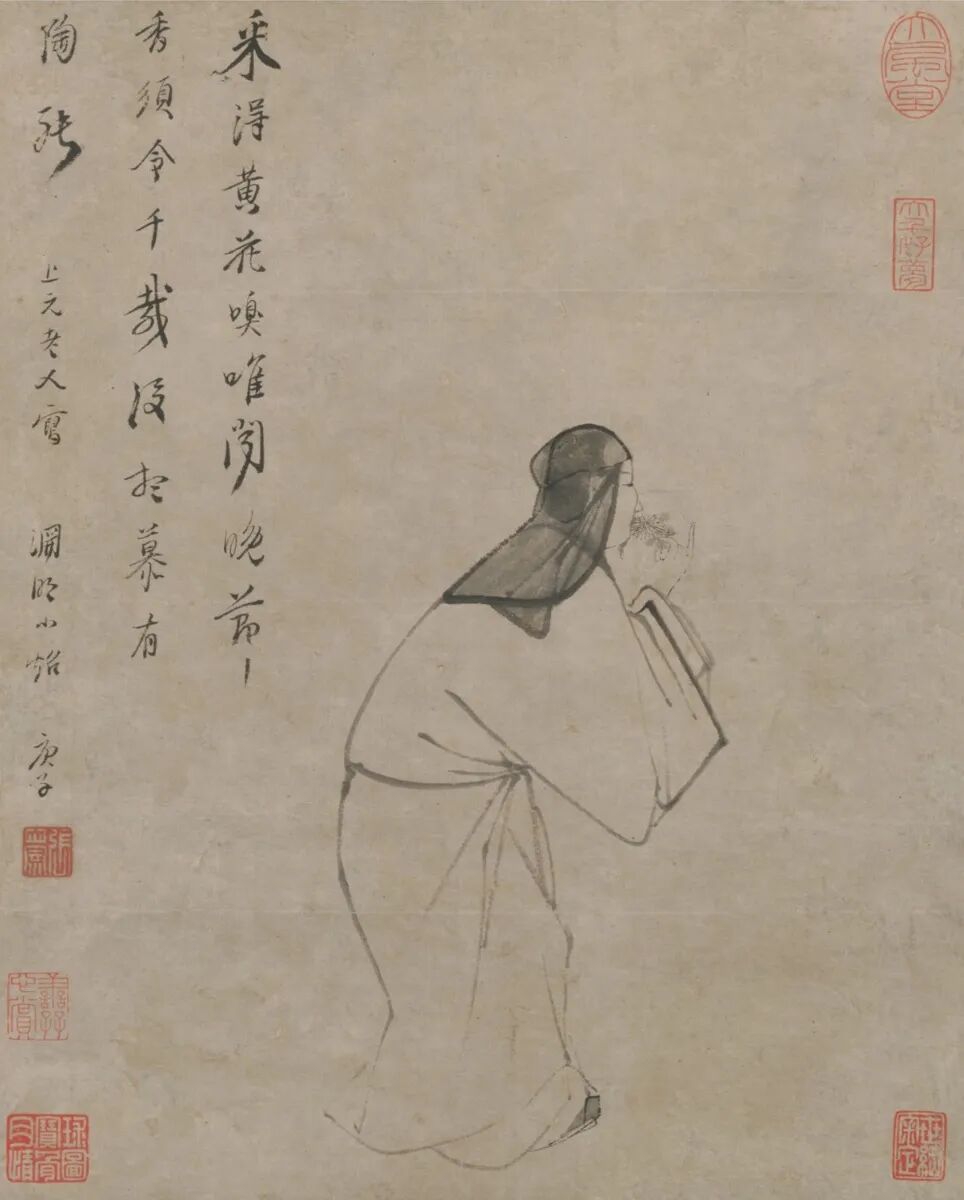 采得黃花嗅唯聞晚節
香須令千載後想慕有
陶張
上元老人寫 淵明小炤 庚子
張風